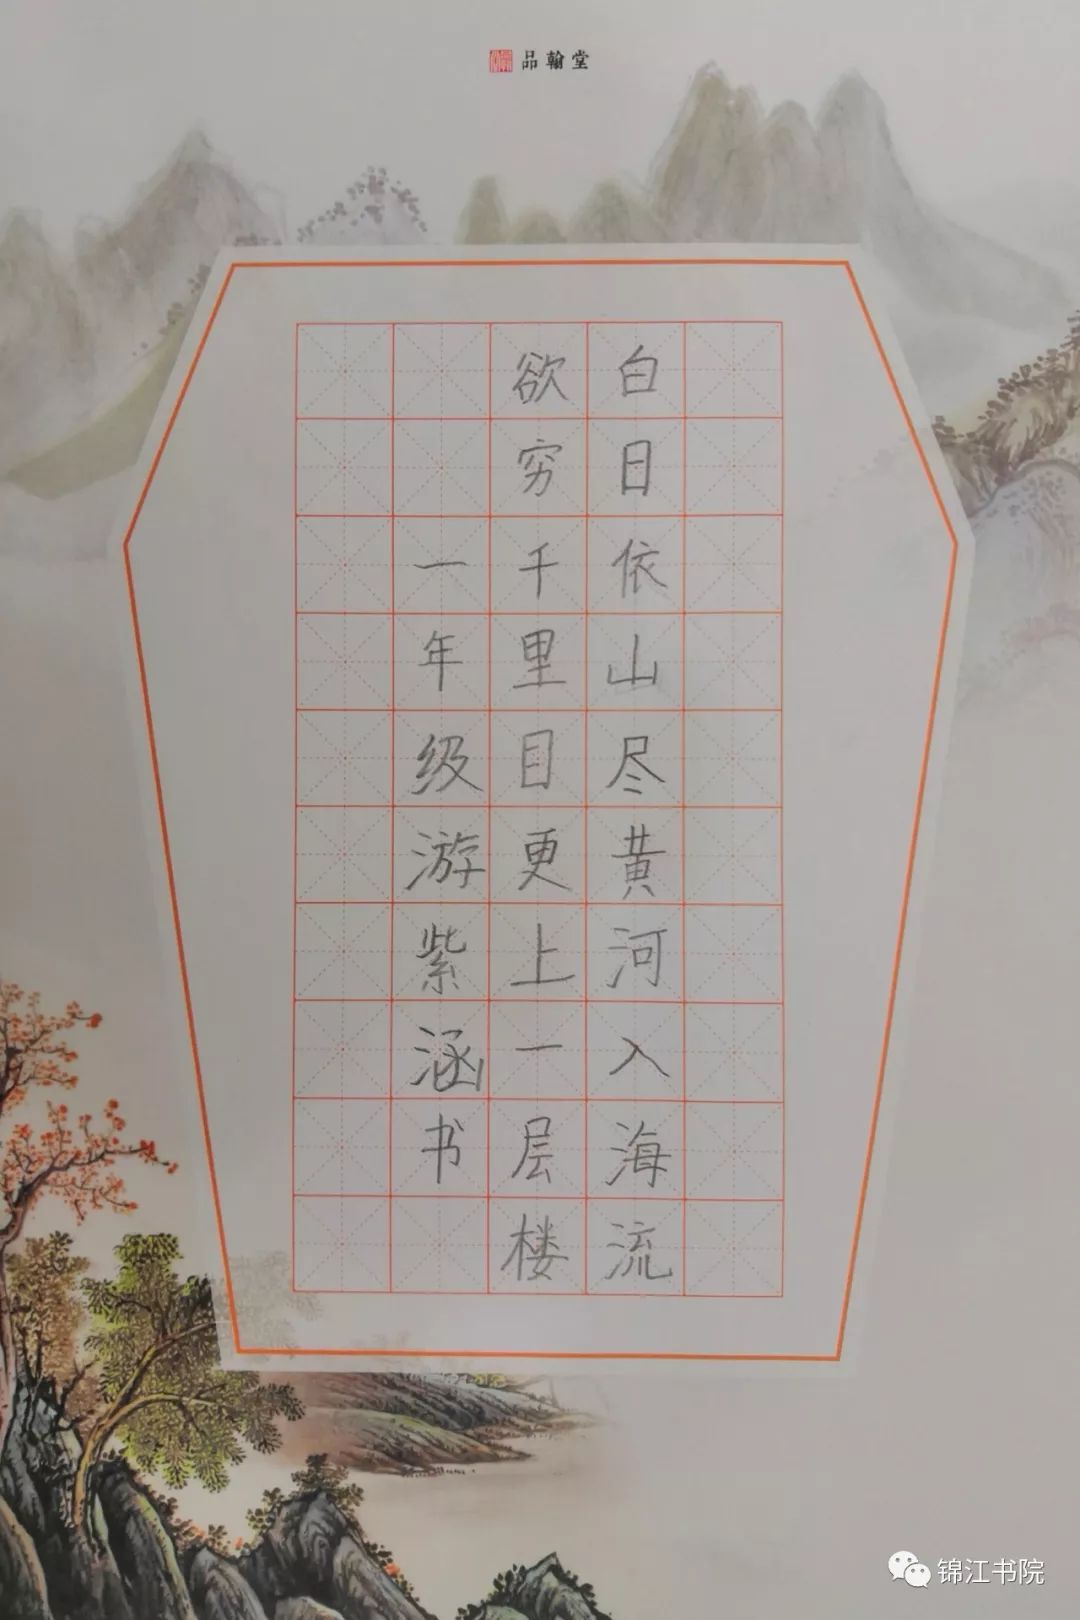 品翰堂
白日依山尽黄河入海流
欲穷千里目更上一层楼
一年级游紫涵书
锦江书院